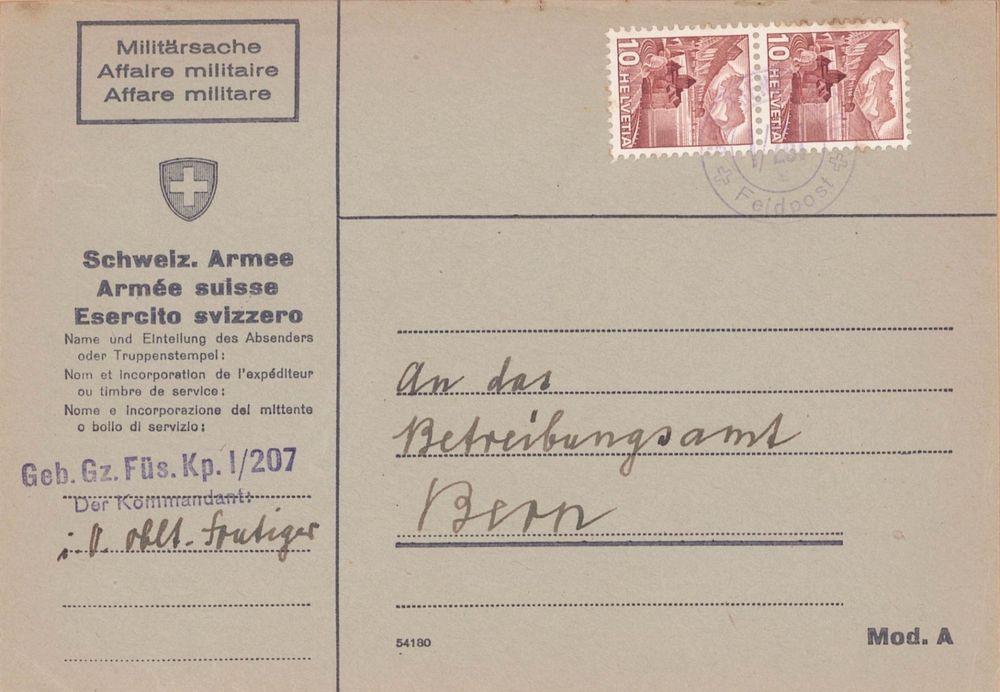 Militärsache
Affaire militaire
Affare militare
Schweiz. Armee
Armée suisse
Esercito svizzero
Name und Einteilung des Absenders
oder Truppenstempel:
Nom et incorporation de l'expéditeur
ou timbre de service:
Nome e incorporazione del mittente
o bollo di servizio:
Geb. Gz. Füs. Kp. I/207
Der Kommandant:
i. V. Oblt. Frutiger
10 HELVETIA
10 HELVETIA
Feldpost
An das
Betreibungsamt
Bern
54180
Mod. A